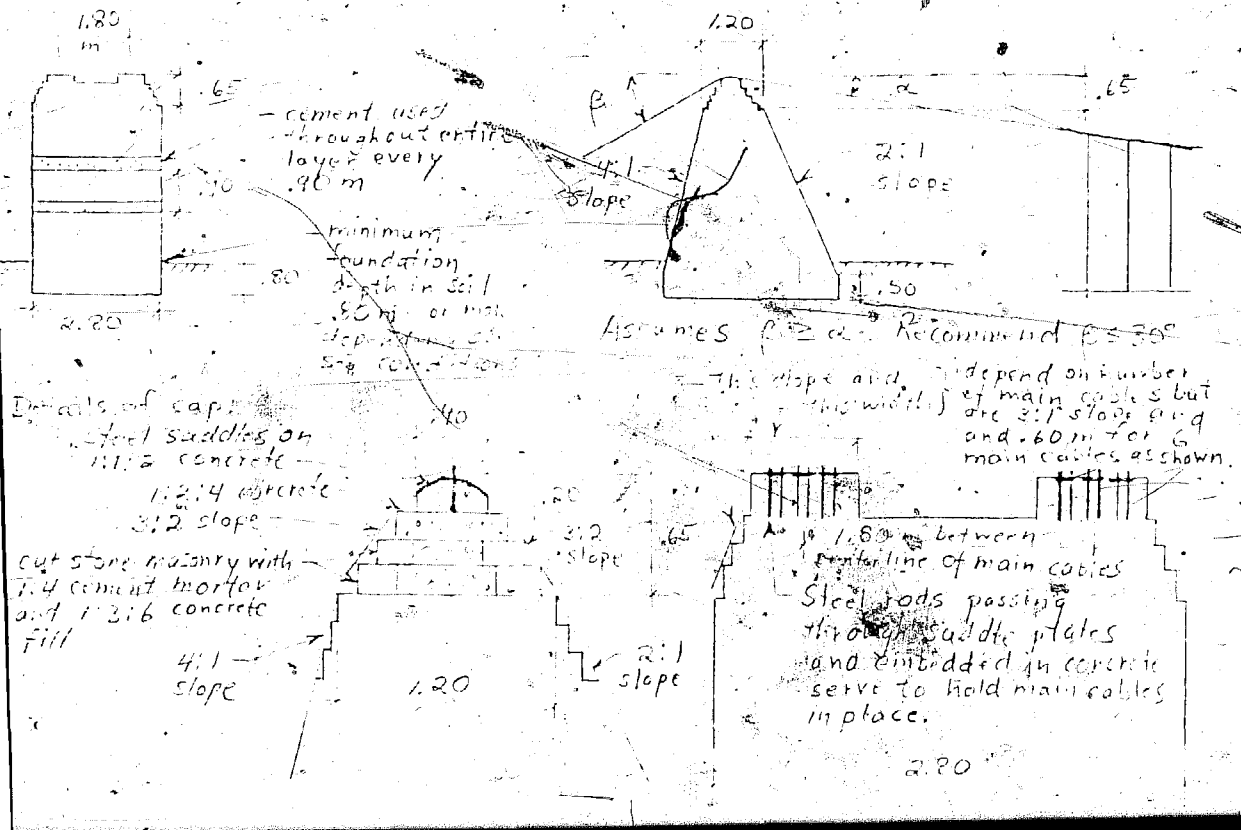 1.80
m
.65
- cement used
throughout entire
layer every
.90 m
.90
- minimum
foundation
depth in soil
.80 m or more
depending on
conditions
.80
2.80
1.20
β
α
.65
4:1
slope
2:1
slope
.50
Assumes β ≥ α. Recommend β ≤ 30°
- This slope and
this width
depend on number
of main cables but
are 3:1 slope and
and .60 m for 6
main cables as shown.
Details of cap:
steel saddles on
1:1:2 concrete -
1:2:4 concrete
3:2 slope -
cut stone masonry with -
1:4 cement mortar
and 1:3:6 concrete
fill
4:1 -
slope
.40
.20
3:2
slope
.65
1.20
2:1
slope
1.80 m between
centerline of main cables
Steel rods passing
through saddle plates
and embedded in concrete
serve to hold main cables
in place.
2.80